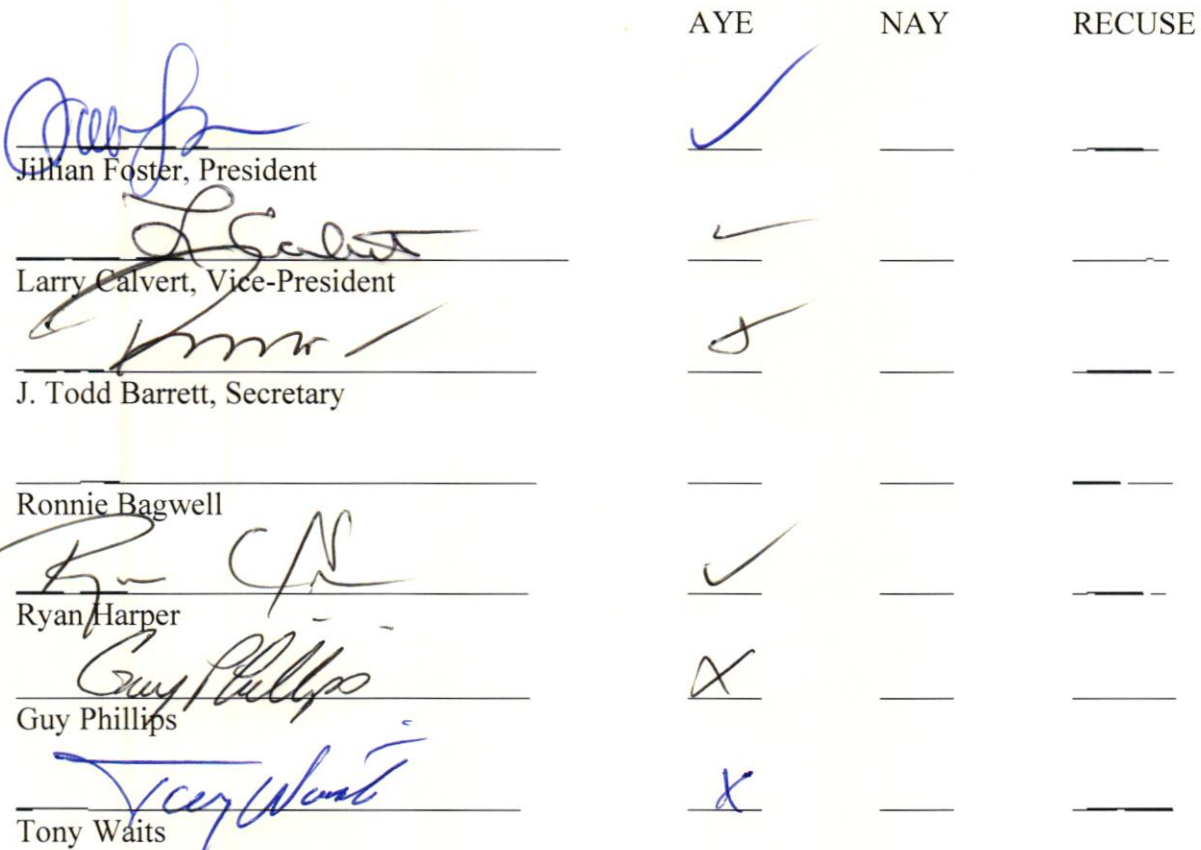 AYE NAY RECUSE
✓
Jillian Foster, President
L Calvert ✓
Larry Calvert, Vice-President
J. Todd Barrett, Secretary
Ronnie Bagwell
✓
Ryan Harper
Guy Phillips X
Guy Phillips
Tony Waits X
Tony Waits